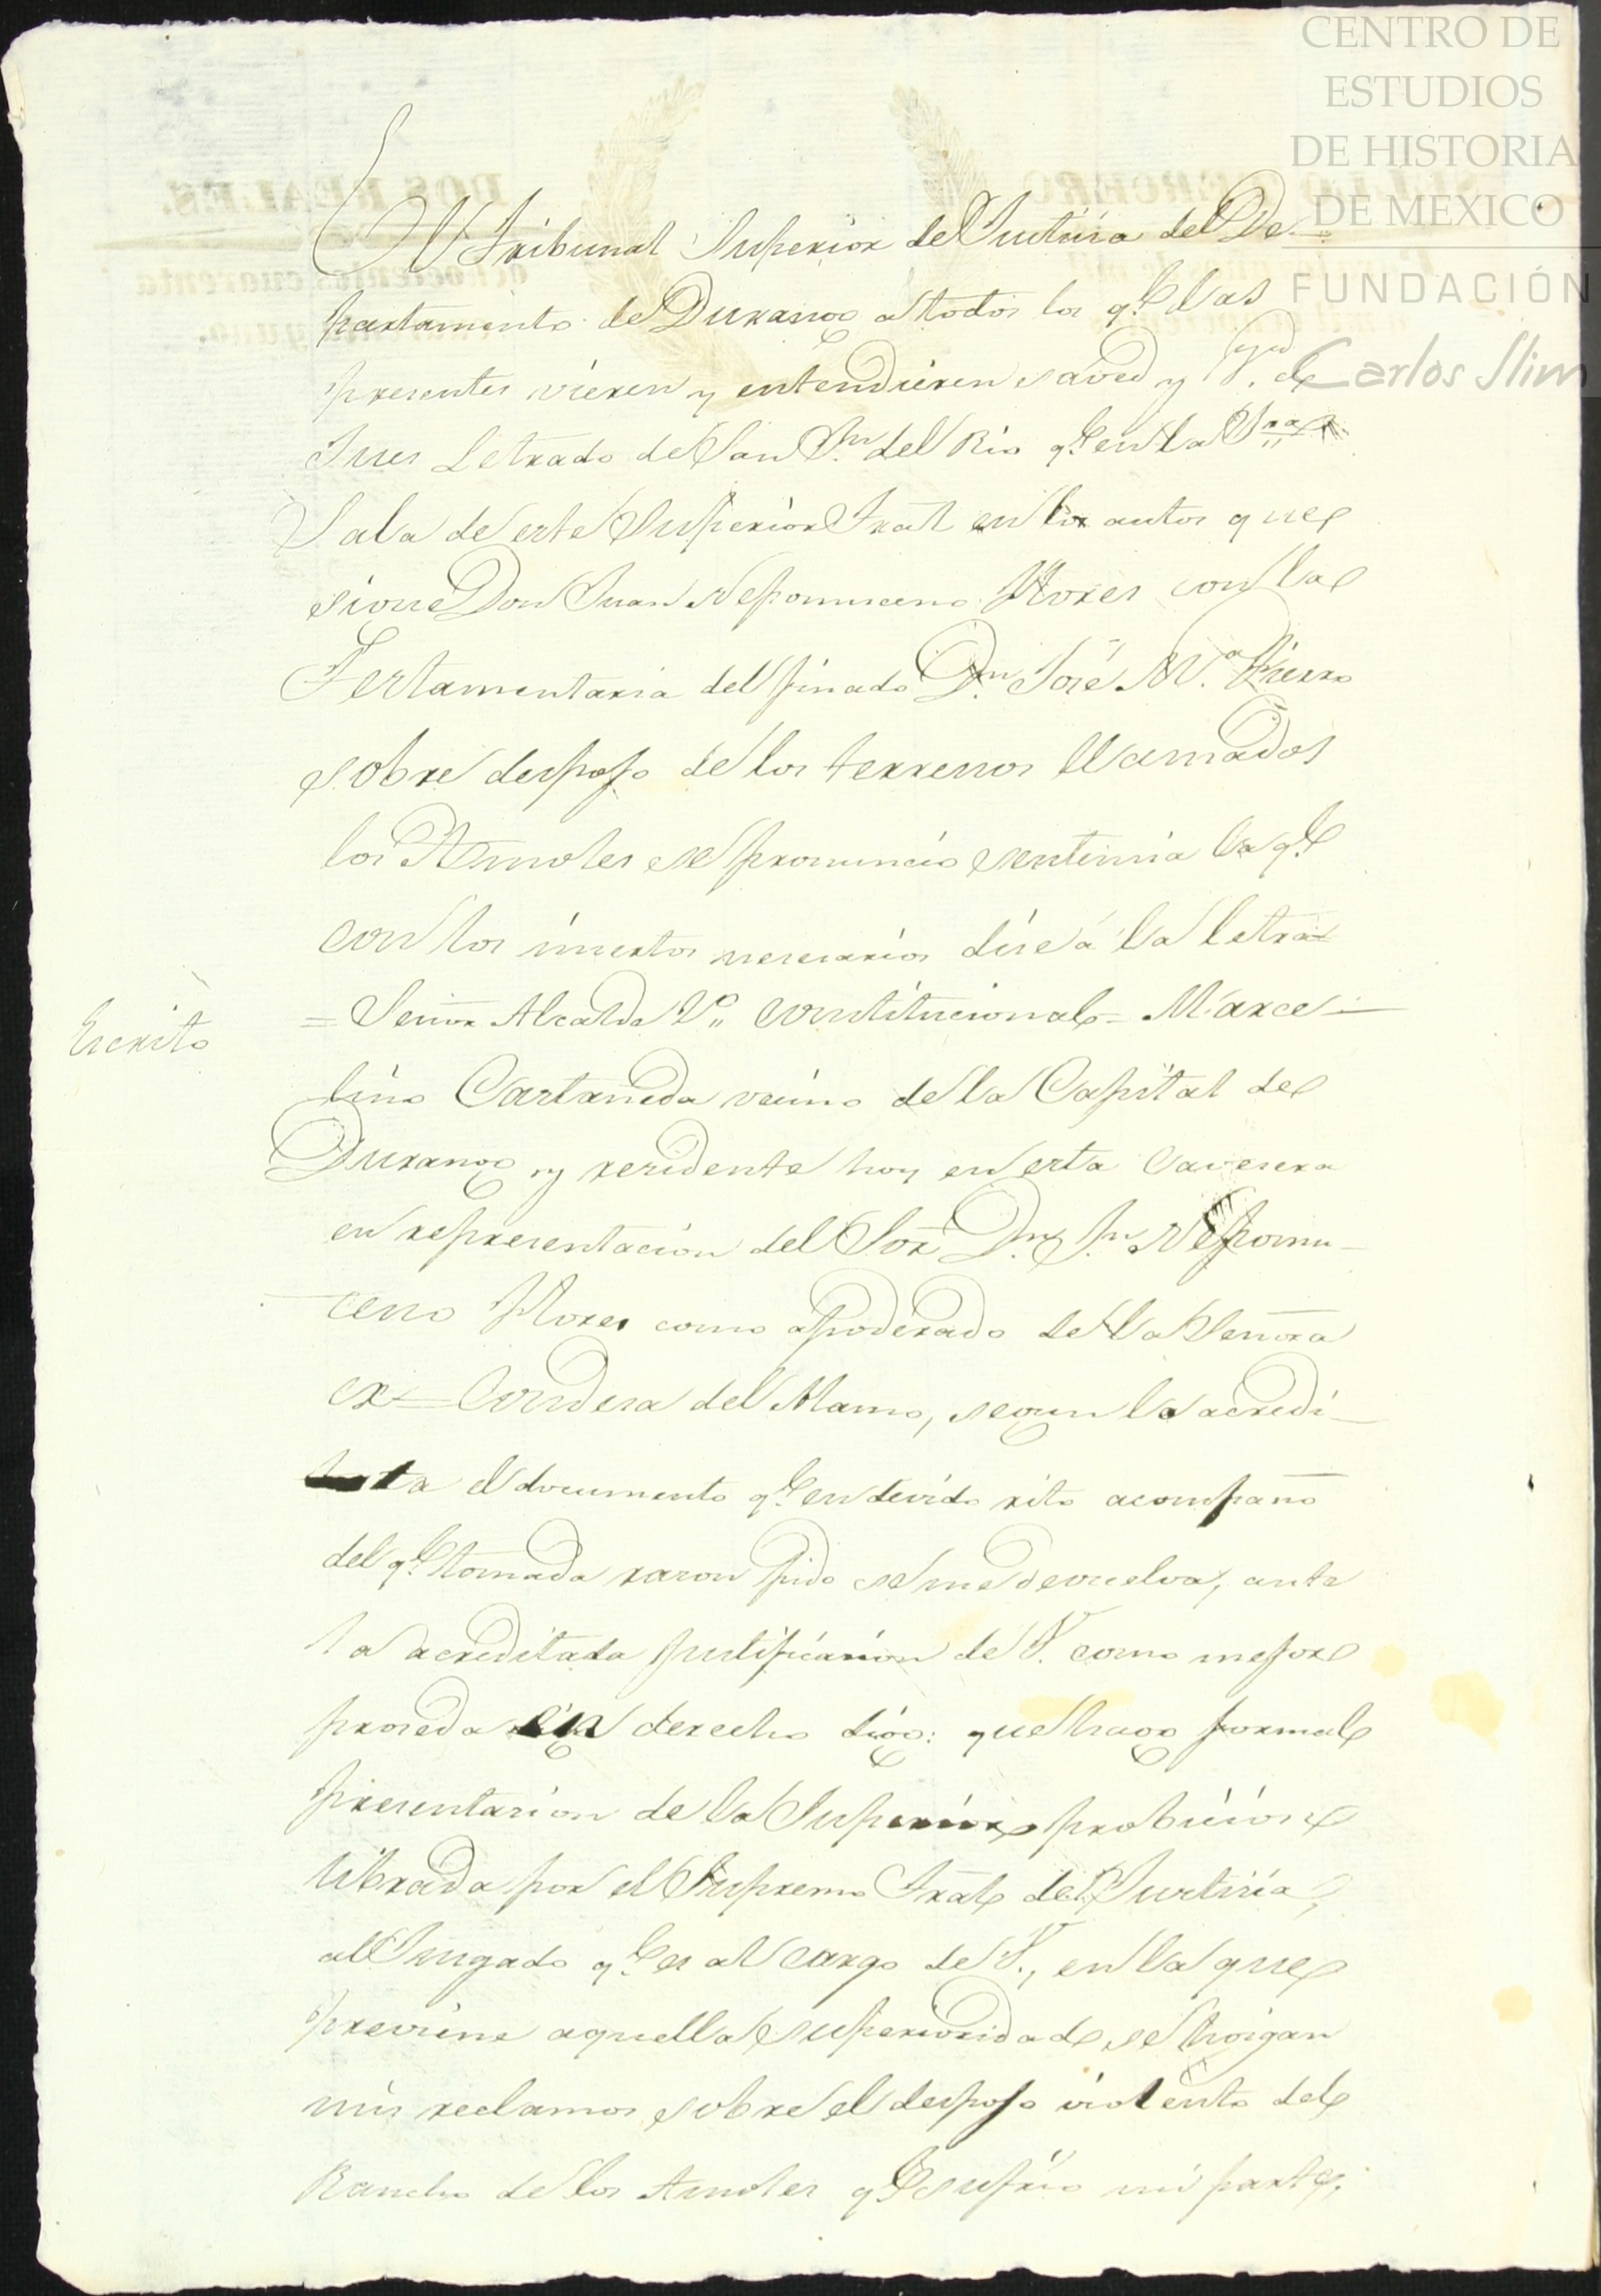 CENTRO DE
ESTUDIOS
DE HISTORIA
DE MEXICO
FUNDACIÓN
Carlos Slim
El Tribunal Superior de Justicia del De-
partamento de Durango a todos los q.e las
presentes vieren y entendieren saved y V. el
Jues Letrado de San Jn. del Rio q.e en la
Sala de este Superior Tral en los autos que
sigue Don Juan Nepomuceno Flores con la
Testamentaria del finado Dn. José M.a Fierro
sobre despojo de los terrenos llamados
los Amoles se pronuncio sentencia la q.e
con los incertos nesesarios dise á la letra
Escrito
= Señor Alcalde 1º constitucional = Marce-
lino Castañeda vecino de la Capital de
Durango y residente hoy en esta cavesera
en representacion del Sor Dn. Jn. Nepomu-
ceno Flores como apoderado de la Señora
ex=Condesa del Alamo, segun lo acredi-
ta el documento q.e en devido rito acompaño
del q.e tomada razon pido se me devuelva, ante
la acreditada justificasion de V. como mejor
proseda en derecho digo: que hago formal
presentasion de la Superior probicion
librada por el Supremo Tral de Justicia,
al Jusgado q.e es al cargo de V., en la que
previene aquella superioridad se hoigan
mis reclamos sobre el despojo violento del
Rancho de los Amoles q.e sufrio mi parte,
SELLO TERCERO
DOS REALES.
ochocientos cuarenta